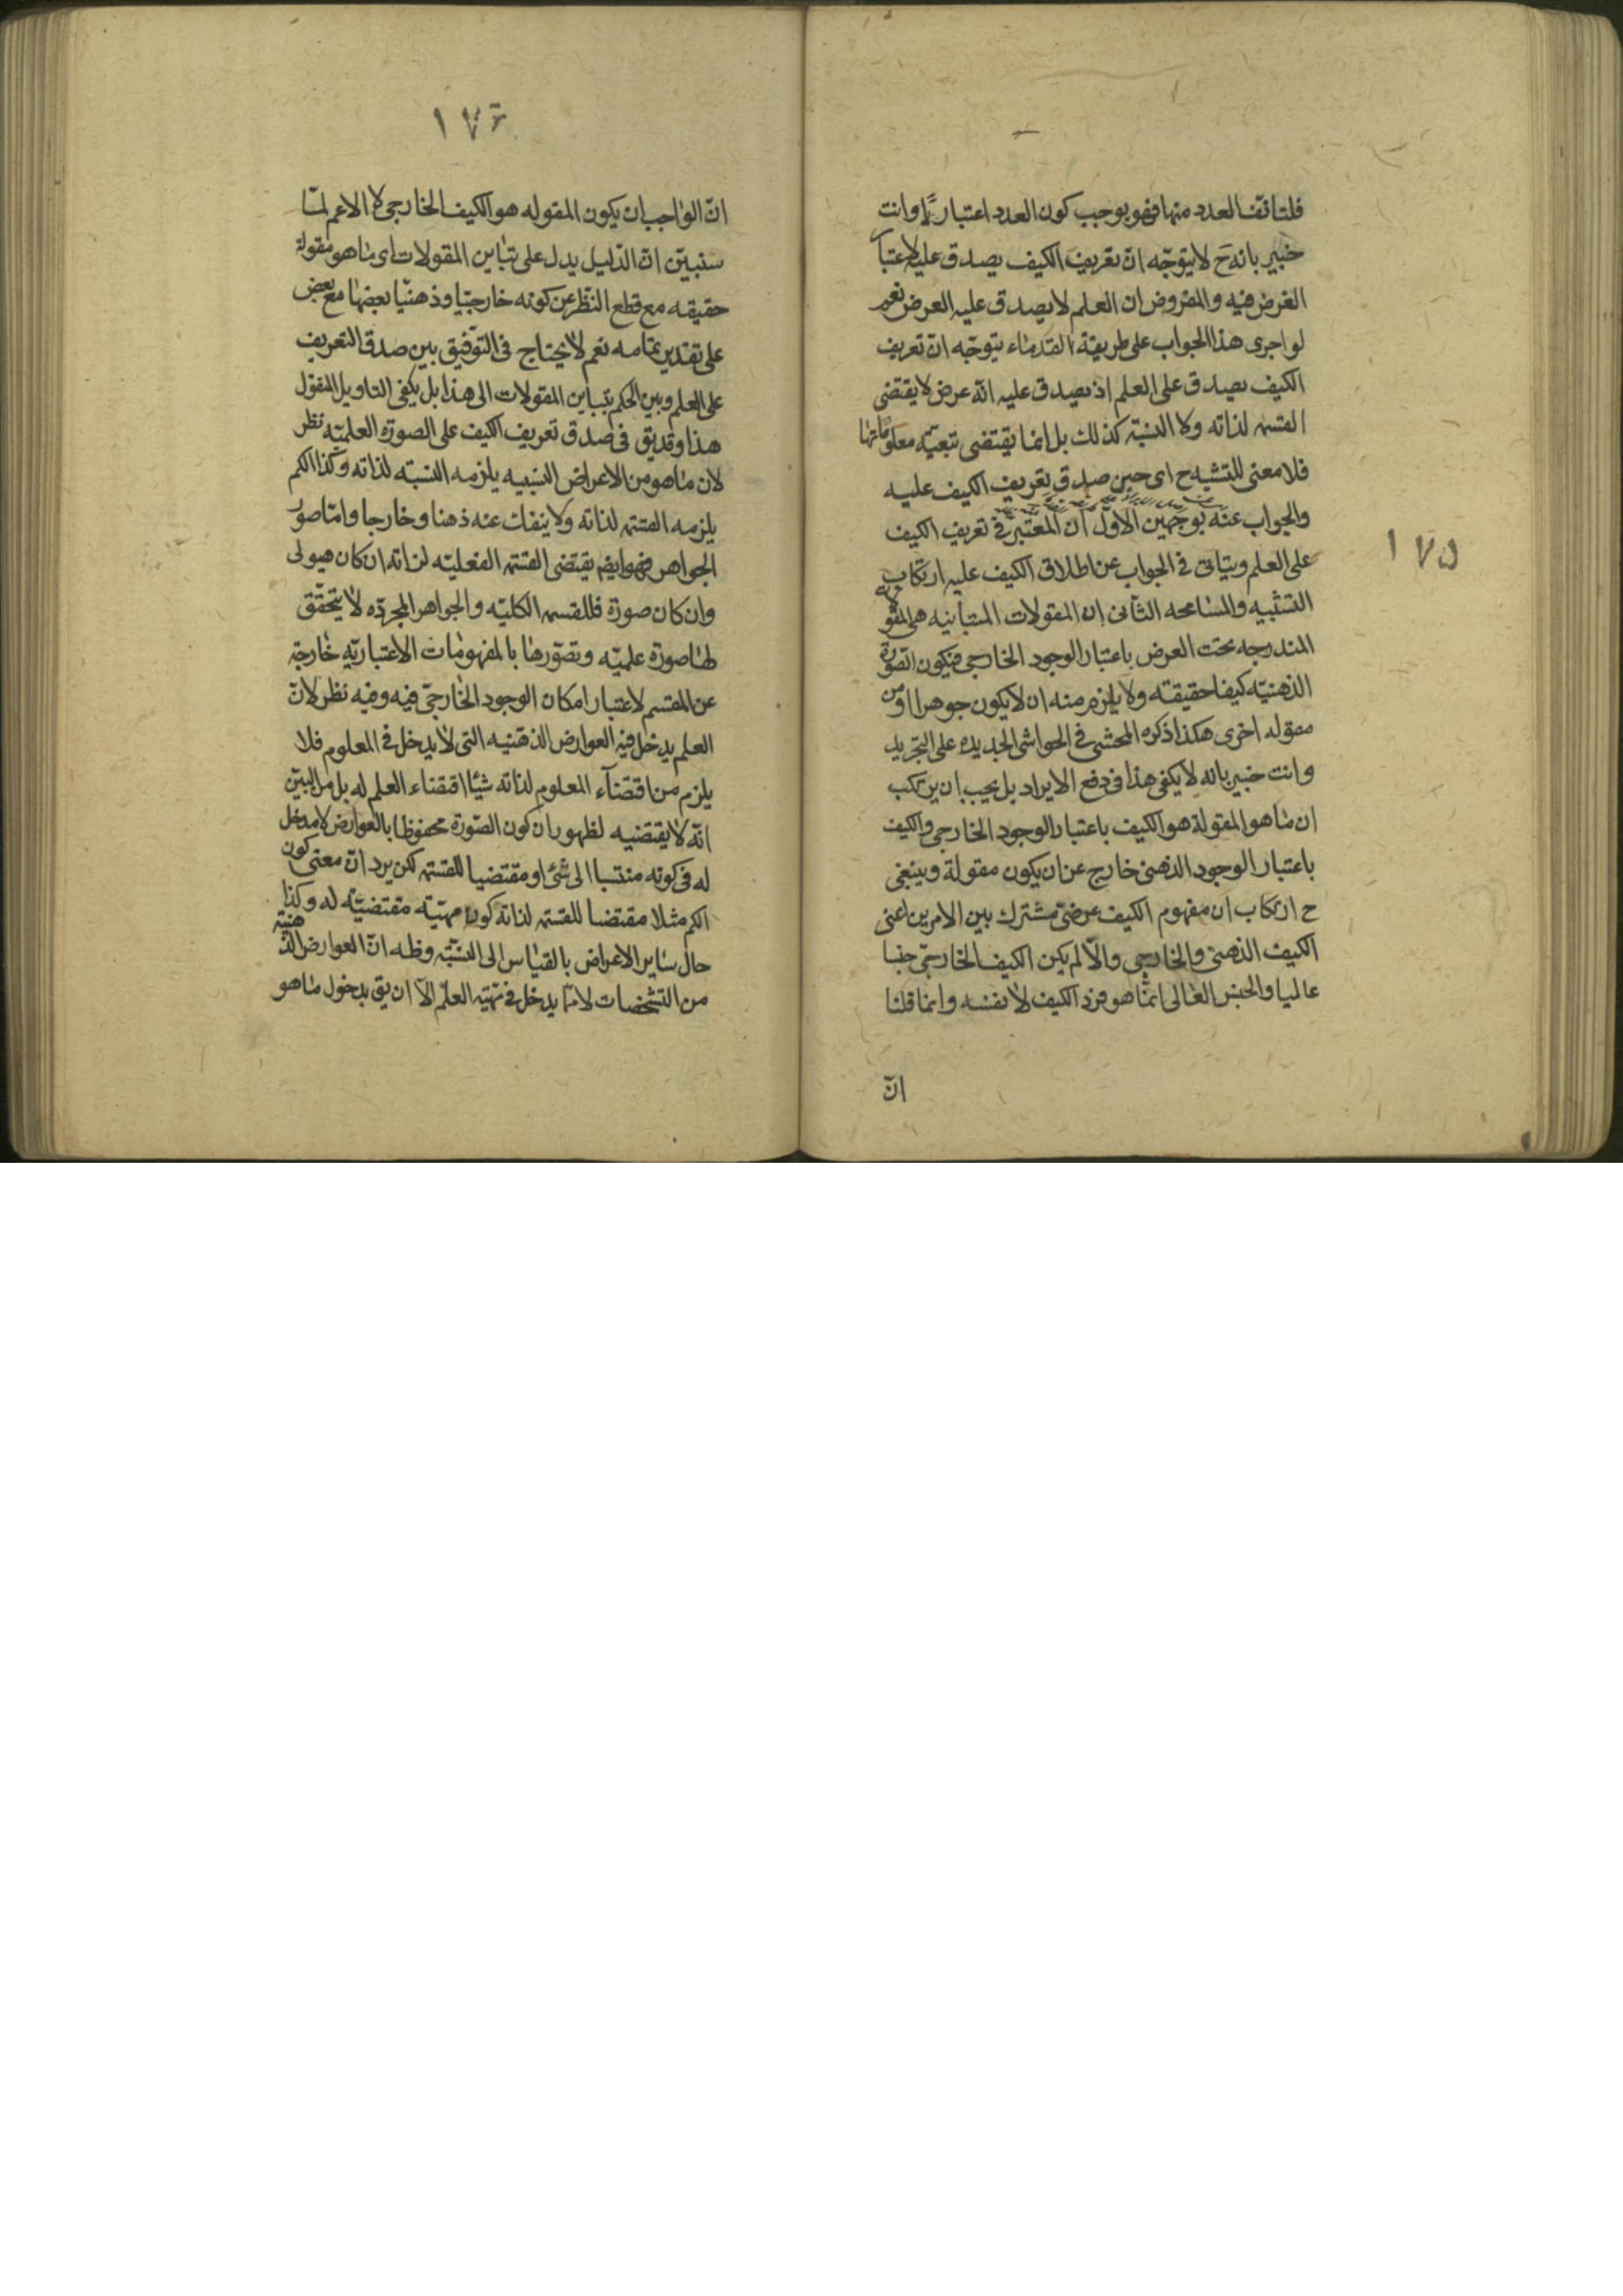 ١٧٥
فلتاتقف العدد منها فهو يوجب كون العدد اعتباريا وانت
خبير بانه ح لا يتوجّه انّ تعريف الكيف يصدق عليه لاعتبا
العرض فيه والمفروض ان العلم لا يصدق عليه العرض نعم
لو اجرى هذا الجواب على طريقة القدماء يتوجّه انّ تعريف
الكيف يصدق على العلم اذ يصدق عليه انّه عرض لا يقتضى
القسمه لذاته ولا النسبة كذلك بل انما يقتضى بتبعيّة معلوماتها
فلا معنى للتشبه ح اى حين صدق تعريف الكيف عليه
والجواب عنه بوجهين الاوّل ان المعتبر فى تعريف الكيف
على العلم ويتاتى فى الجواب عن اطلاق الكيف عليه ارتكاب
التشبيه والمسامحه الثانى ان المقولات المتباينه هى المقولة
المندرجه تحت العرض باعتبار الوجود الخارجى فيكون الصورة
الذهنيّه كيفا حقيقته ولا يلزم منه ان لا يكون جوهرا او من
مقوله اخرى هكذا ذكره المحشى فى الحواشى الجديدة على التجريد
وانت خبير بانه لا يكفى هذا فى دفع الايراد بل يجب ان يرتكب
ان ما هو المقولة هو الكيف باعتبار الوجود الخارجى والكيف
باعتبار الوجود الذهنى خارج عن ان يكون مقولة وينبغى
ح ارتكاب ان مفهوم الكيف عرضىّ مشترك بين الامرين اعنى
الكيف الذهنى والخارجى والّا لم يكن الكيف الخارجىّ جنسا
عاليا والجنس العالى انّما هو فرد الكيف لا نفسه وانما قلنا
انّ
١٧٦
انّ الواجب ان يكون المقوله هو الكيف الخارجى لا الاعم لمّا
سنبيّن انّ الدّليل يدل على تباين المقولات اى ما هو مقولة
حقيقه مع قطع النّظر عن كونه خارجيّا وذهنيّا بعضها مع بعض
على تقدير تمامه نعم لا يحتاج فى التّوفيق بين صدق التعريف
على العلم وبين الحكم بتباين المقولات الى هذا بل يكفى التاويل المنقول
هذا وقد يق فى صدق تعريف الكيف على الصورة العلميّه نظر
لان ما هو من الاعراض النسبيه يلزمه النسبته لذاته وكذا الكم
يلزمه القسمة لذاته ولا ينفك عنه ذهنا وخارجا وامّا صور
الجواهر فهو ايض يقتضى القسمة الفعليّه لذاته ان كان هيولى
وان كان صورة فللقسمه الكليّه والجواهر المجرّده لا يتحقّق
لها صورة علميّه وتصوّرها بالمفهومات الاعتباريّه خارجة
عن المقسم لاعتبار امكان الوجود الخارجىّ فيه وفيه نظر لانّ
العلم يدخل فيه العوارض الذهنيه التى لا يدخل فى المعلوم فلا
يلزم من اقتضآء المعلوم لذاته شيئا اقتضاء العلم له بل من البيّن
انّه لا يقتضيه لظهور ان كون الصّورة محفوظا بالعوارض لا مدخل
له فى كونه منتسبا الى شئ او مقتضيا للقسمة لكن يرد انّ معنى كون
الكم مثلا مقتضيا للقسمة لذاته كون مهيّته مقتضيّه له وكذا
حال ساير الاعراض بالقياس الى النسبّة وظه انّ العوارض الذهنيّة
من التشخصات لا مّا يدخل فى مهيّه العلم الّا ان يق بدخول ما هو